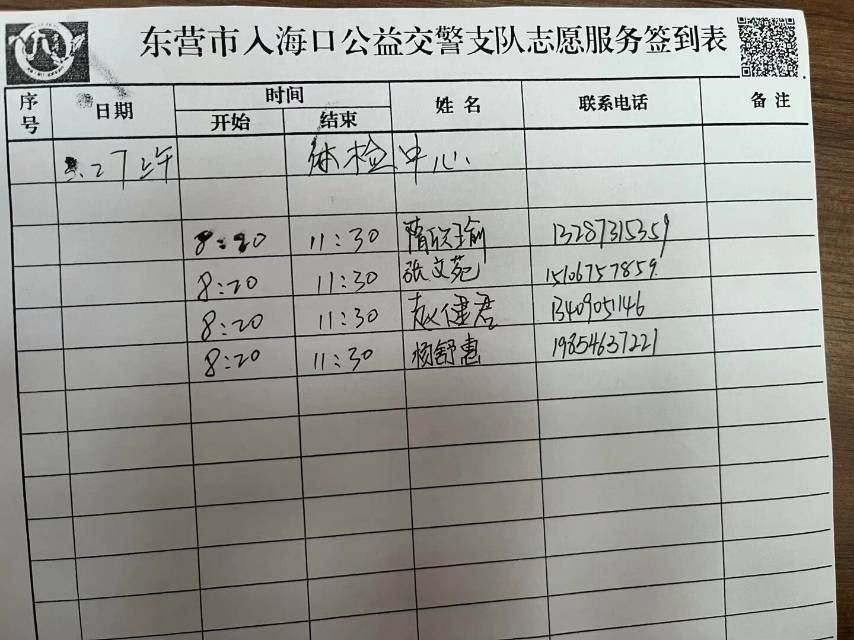 东营市入海口公益交警支队志愿服务签到表
序号 日期 时间 姓名 联系电话 备注
开始 结束
.27上午 体检中心
8:20 11:30 隋欣瑜 13287315359
8:20 11:30 张文苑 15106757859
8:20 11:30 赵健君 13409051146
8:20 11:30 杨舒惠 19854637221